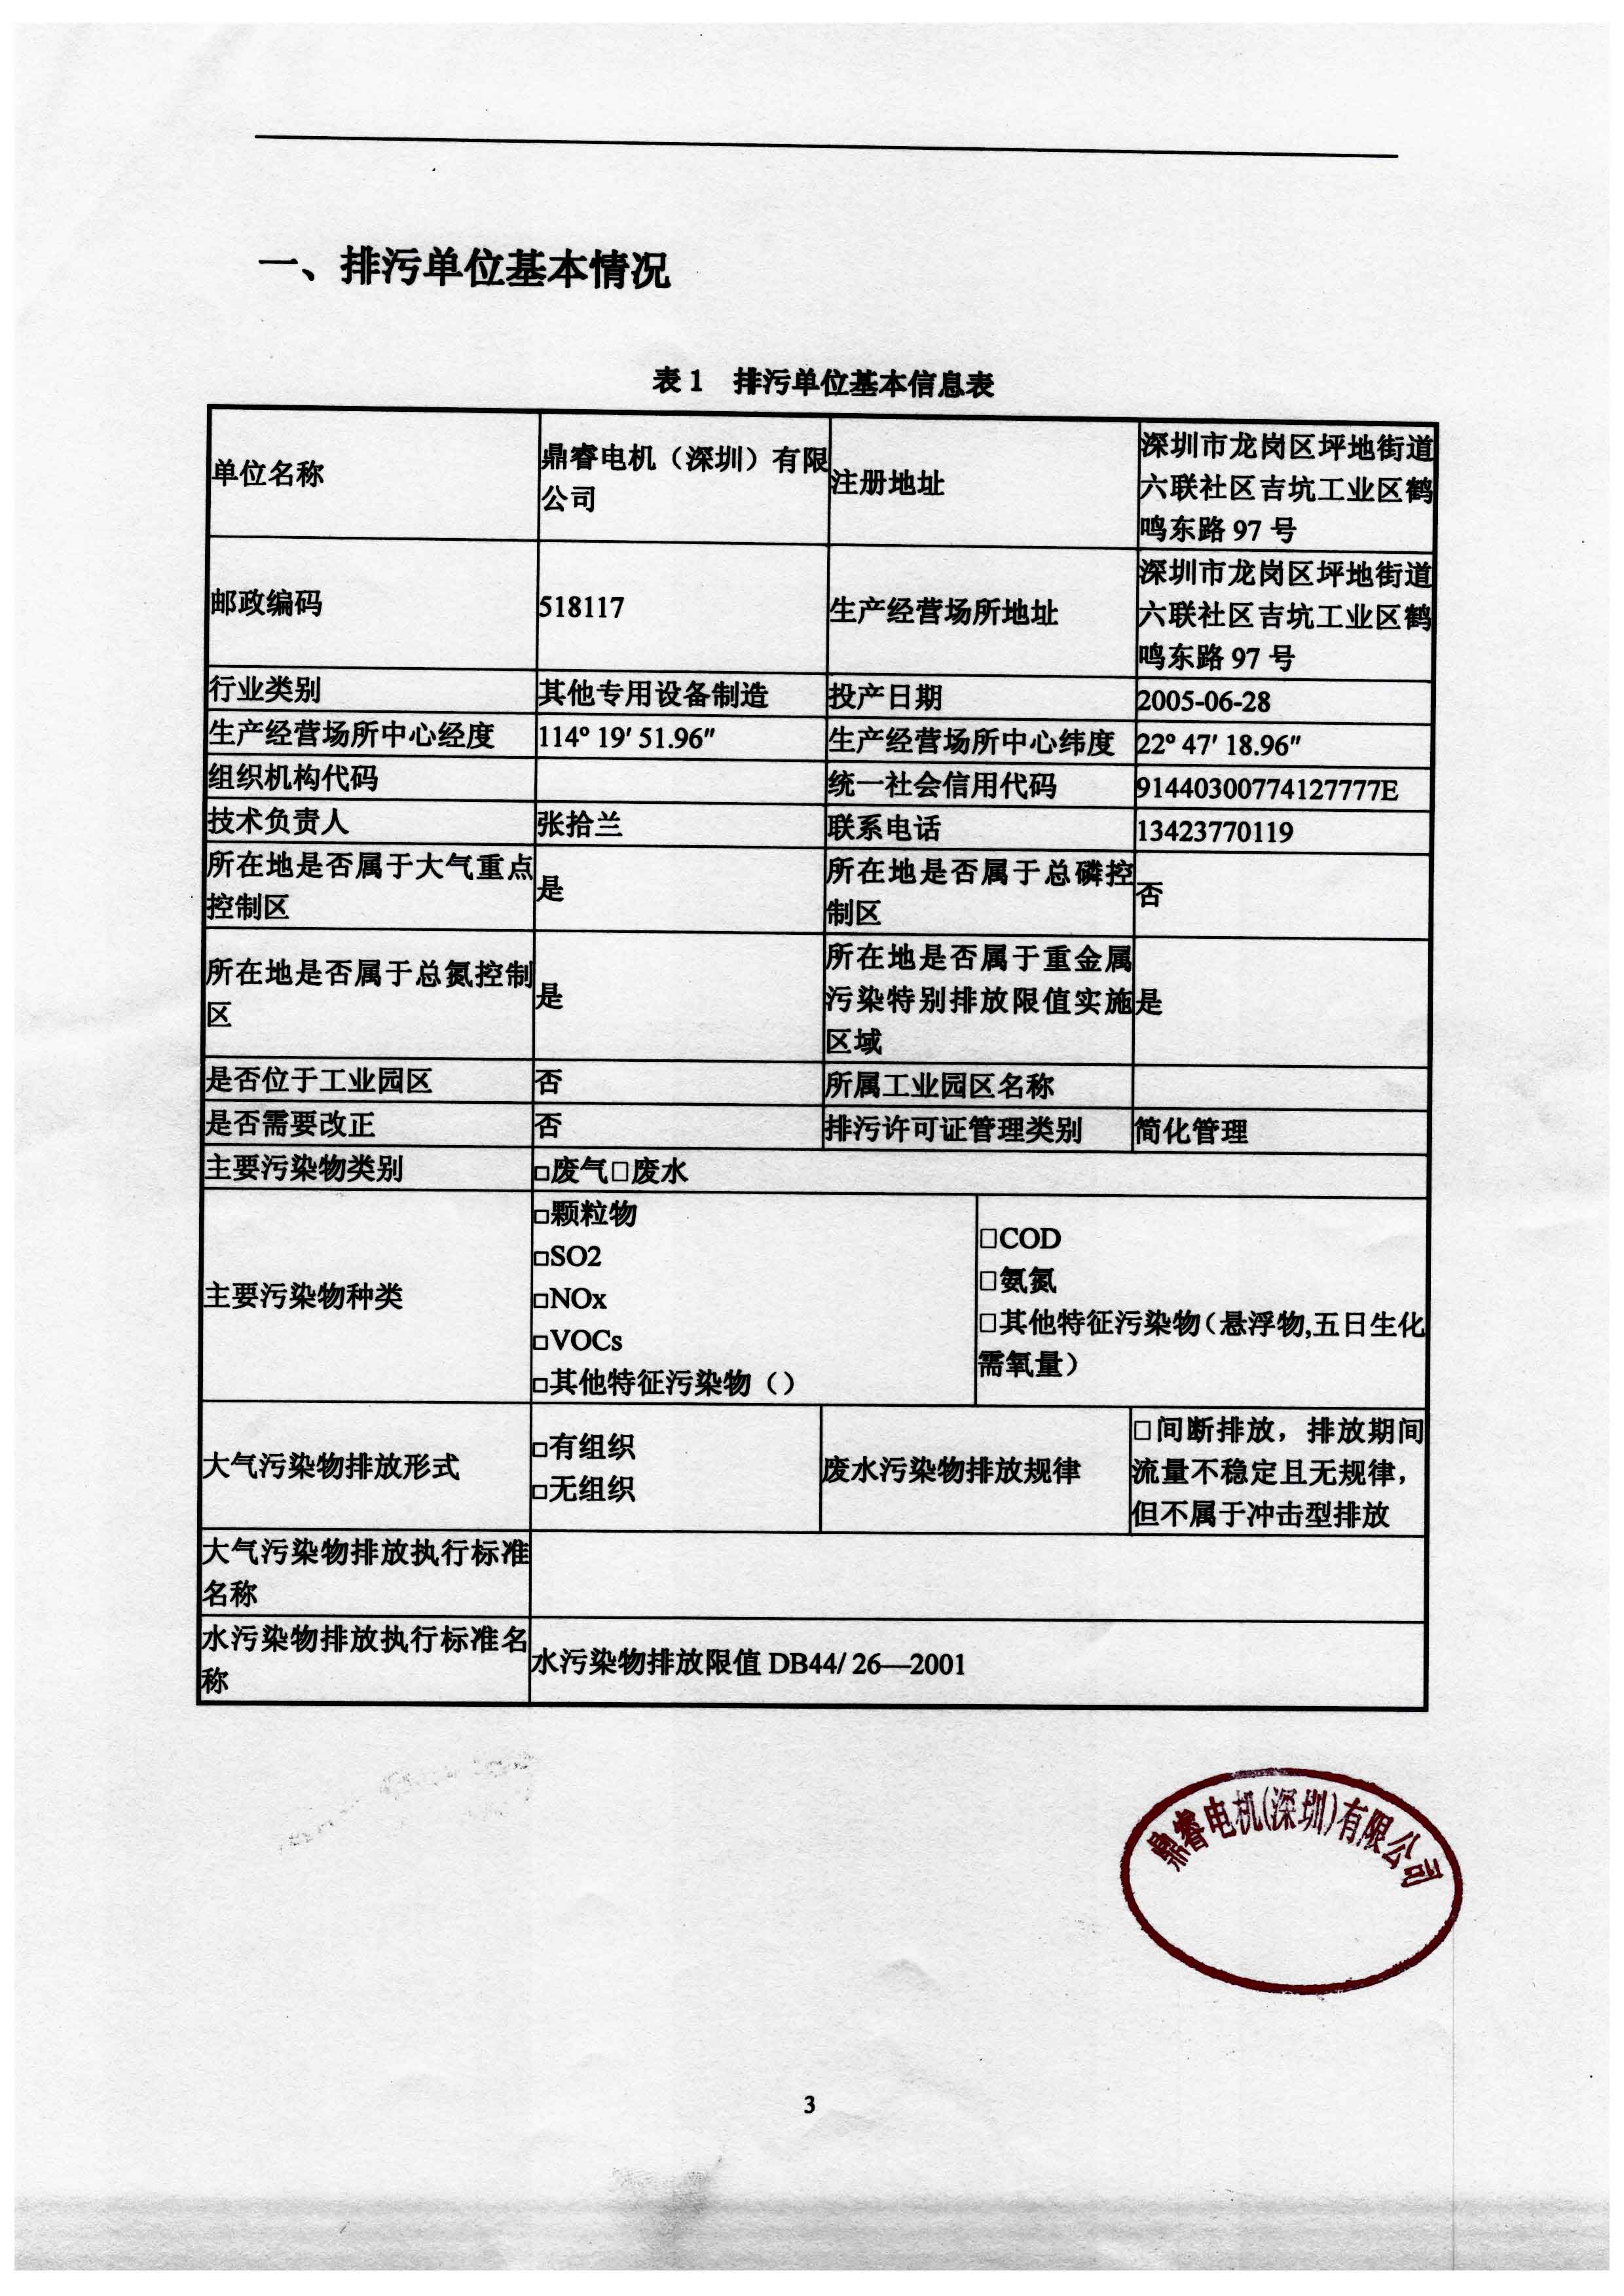 一、排污单位基本情况
表 1 排污单位基本信息表
单位名称
鼎睿电机（深圳）有限
公司
注册地址
深圳市龙岗区坪地街道
六联社区吉坑工业区鹤
鸣东路 97 号
邮政编码
518117
生产经营场所地址
深圳市龙岗区坪地街道
六联社区吉坑工业区鹤
鸣东路 97 号
行业类别
其他专用设备制造
投产日期
2005-06-28
生产经营场所中心经度
114° 19′ 51.96″
生产经营场所中心纬度
22° 47′ 18.96″
组织机构代码
统一社会信用代码
91440300774127777E
技术负责人
张拾兰
联系电话
13423770119
所在地是否属于大气重点
控制区
是
所在地是否属于总磷控
制区
否
所在地是否属于总氮控制
区
是
所在地是否属于重金属
污染特别排放限值实施
区域
是
是否位于工业园区
否
所属工业园区名称
是否需要改正
否
排污许可证管理类别
简化管理
主要污染物类别
□废气□废水
主要污染物种类
□颗粒物
□SO2
□NOx
□VOCs
□其他特征污染物（）
□COD
□氨氮
□其他特征污染物（悬浮物,五日生化
需氧量）
大气污染物排放形式
□有组织
□无组织
废水污染物排放规律
□间断排放，排放期间
流量不稳定且无规律，
但不属于冲击型排放
大气污染物排放执行标准
名称
水污染物排放执行标准名
称
水污染物排放限值 DB44/ 26—2001
鼎睿电机(深圳)有限公司
3